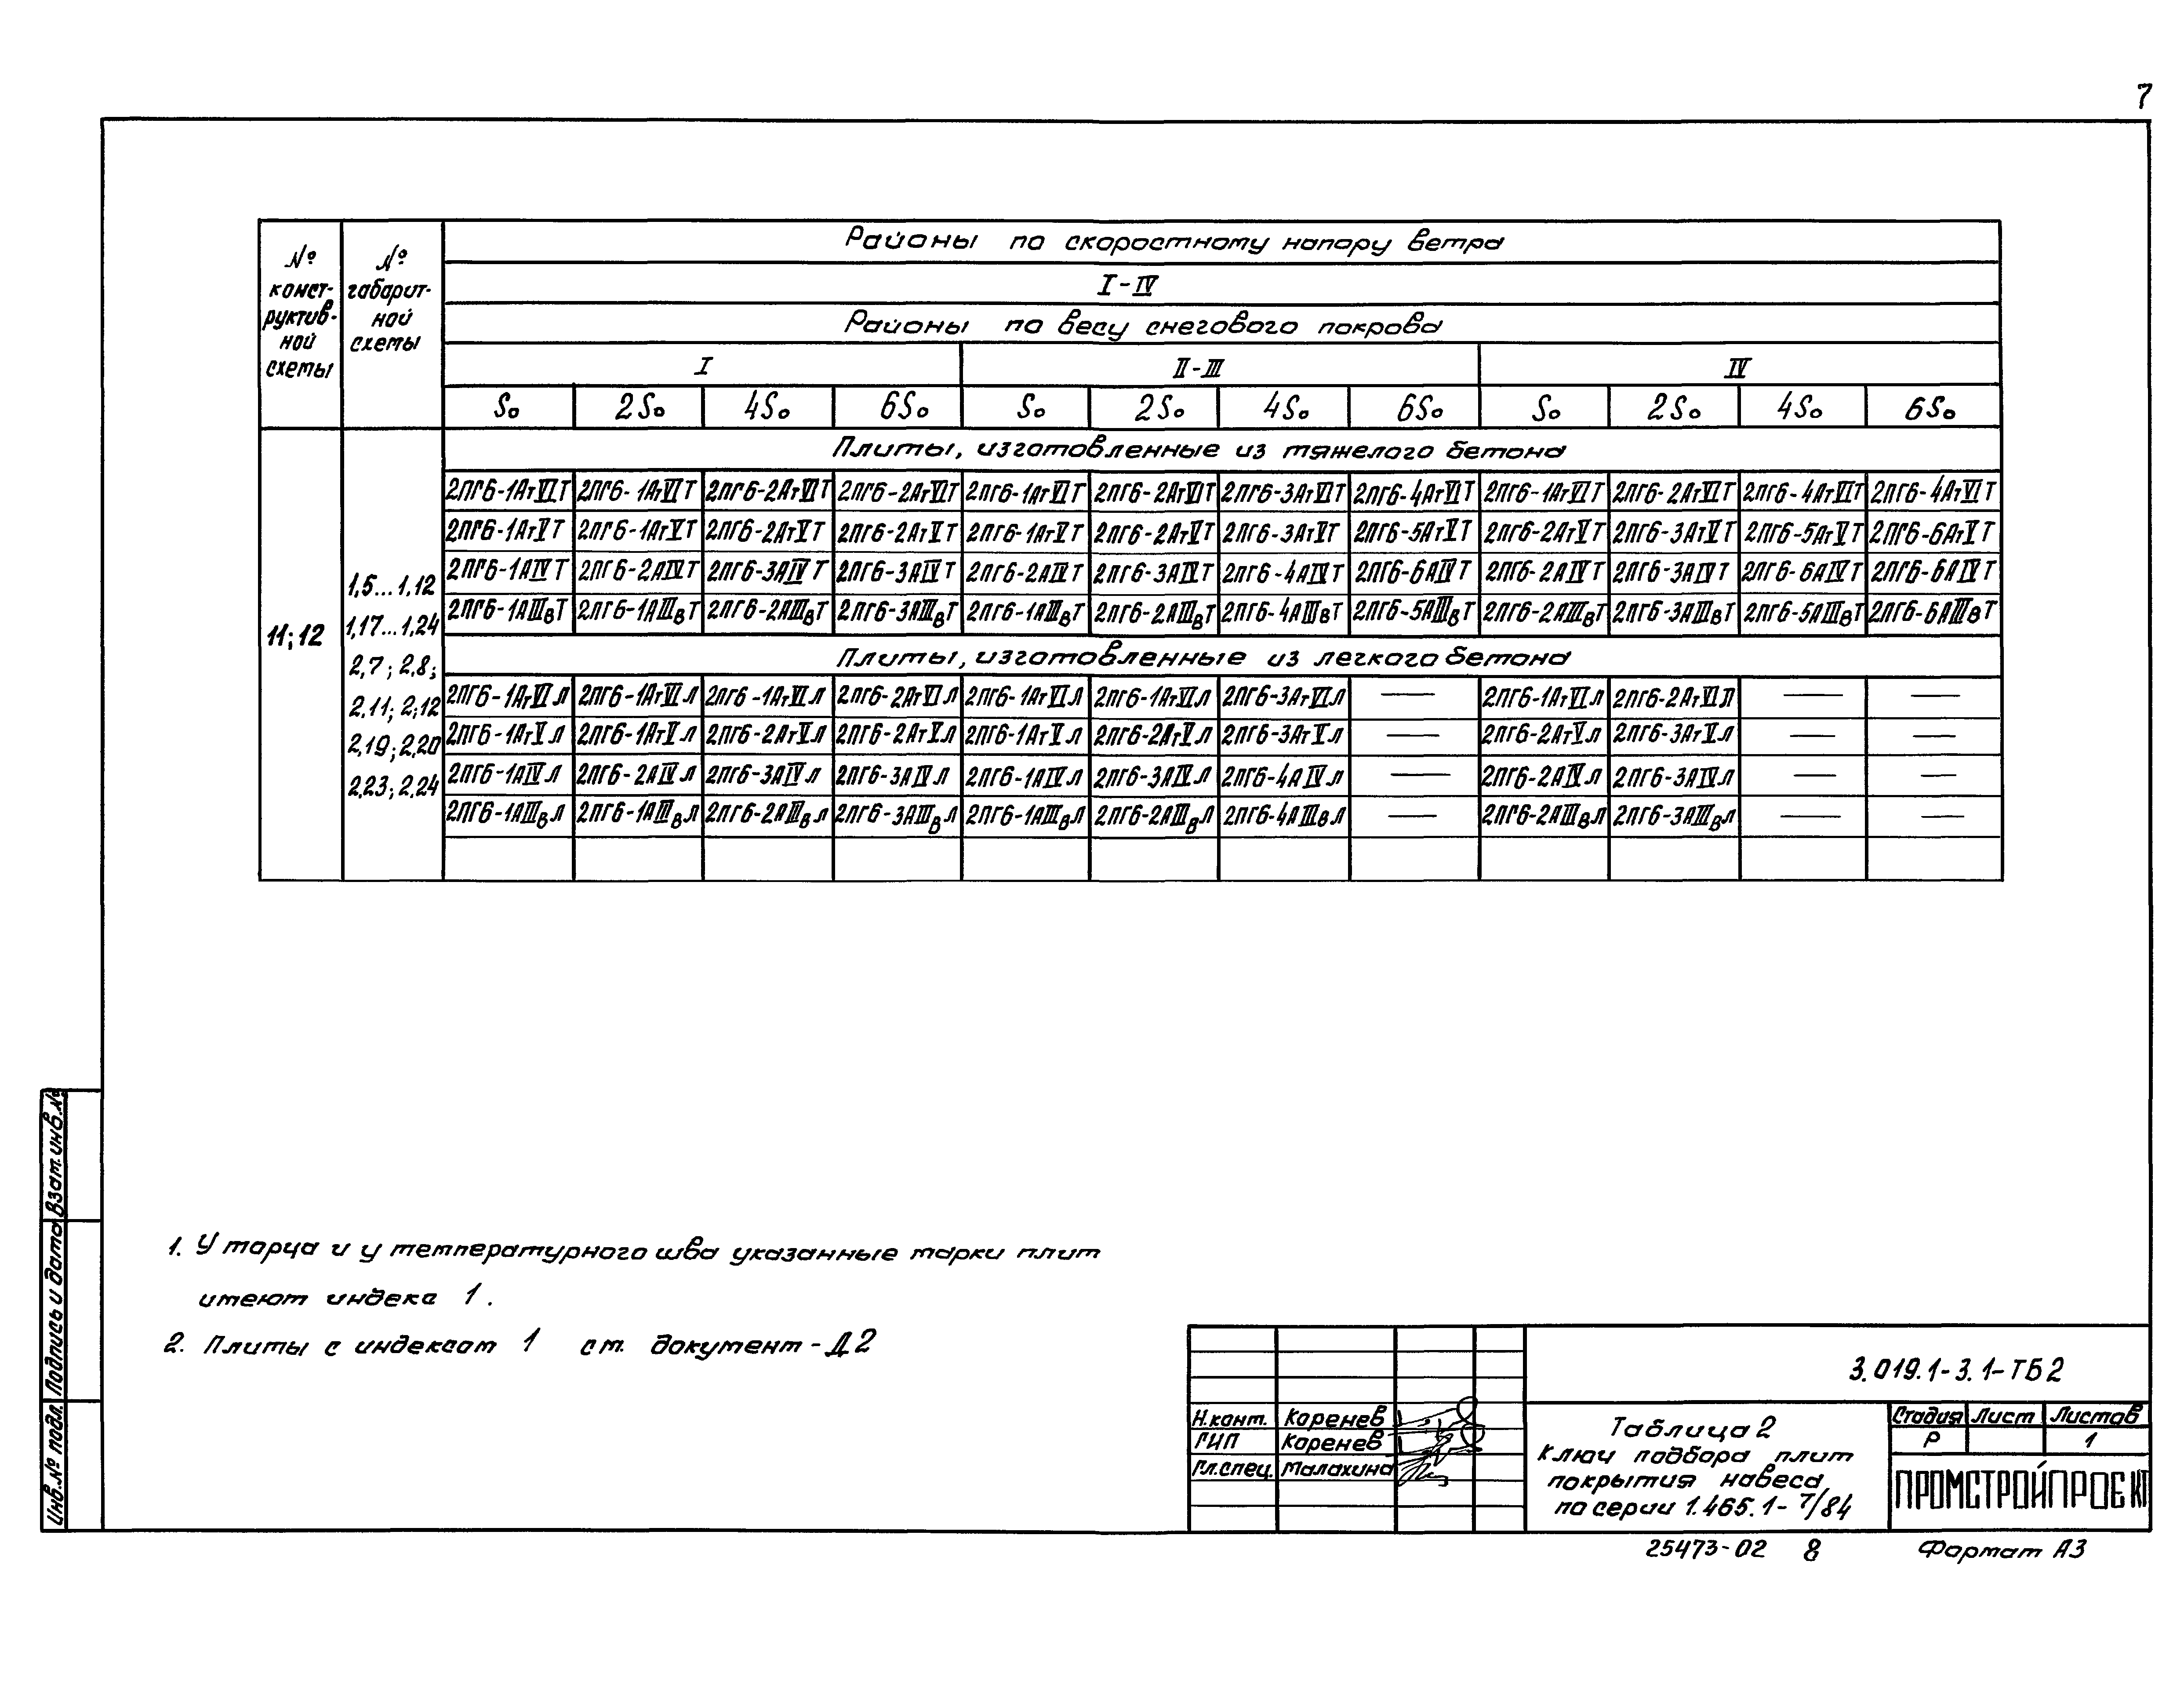 7
№ конст-руктив-ной схемы
№ габарит-ной схемы
Районы по скоростному напору ветра
I-IV
Районы по весу снегового покрова
I II-III IV
S₀ 2S₀ 4S₀ 6S₀ S₀ 2S₀ 4S₀ 6S₀ S₀ 2S₀ 4S₀ 6S₀
11; 12
1,5...1,12
1,17...1,24
2,7; 2,8;
2,11; 2;12
2,19; 2,20
2,23; 2,24
Плиты, изготовленные из тяжелого бетона
2ПГ6-1АтVIТ 2ПГ6-1АтVIТ 2ПГ6-2АтVIТ 2ПГ6-2АтVIТ 2ПГ6-1АтVIТ 2ПГ6-2АтVIТ 2ПГ6-3АтVIТ 2ПГ6-4АтVIТ 2ПГ6-1АтVIТ 2ПГ6-2АтVIТ 2ПГ6-4АтVIТ 2ПГ6-4АтVIТ
2ПГ6-1АтVТ 2ПГ6-1АтVТ 2ПГ6-2АтVТ 2ПГ6-2АтVТ 2ПГ6-1АтVТ 2ПГ6-2АтVТ 2ПГ6-3АтVТ 2ПГ6-5АтVТ 2ПГ6-2АтVТ 2ПГ6-3АтVТ 2ПГ6-5АтVТ 2ПГ6-6АтVТ
2ПГ6-1АIVТ 2ПГ6-2АIVТ 2ПГ6-3АIVТ 2ПГ6-3АIVТ 2ПГ6-2АIVТ 2ПГ6-3АIVТ 2ПГ6-4АIVТ 2ПГ6-6АIVТ 2ПГ6-2АIVТ 2ПГ6-3АIVТ 2ПГ6-6АIVТ 2ПГ6-6АIVТ
2ПГ6-1АIIIвТ 2ПГ6-1АIIIвТ 2ПГ6-2АIIIвТ 2ПГ6-3АIIIвТ 2ПГ6-1АIIIвТ 2ПГ6-2АIIIвТ 2ПГ6-4АIIIвТ 2ПГ6-5АIIIвТ 2ПГ6-2АIIIвТ 2ПГ6-3АIIIвТ 2ПГ6-5АIIIвТ 2ПГ6-6АIIIвТ
Плиты, изготовленные из легкого бетона
2ПГ6-1АтVIЛ 2ПГ6-1АтVIЛ 2ПГ6-1АтVIЛ 2ПГ6-2АтVIЛ 2ПГ6-1АтVIЛ 2ПГ6-1АтVIЛ 2ПГ6-3АтVIЛ — 2ПГ6-1АтVIЛ 2ПГ6-2АтVIЛ — —
2ПГ6-1АтVЛ 2ПГ6-1АтVЛ 2ПГ6-2АтVЛ 2ПГ6-2АтVЛ 2ПГ6-1АтVЛ 2ПГ6-2АтVЛ 2ПГ6-3АтVЛ — 2ПГ6-2АтVЛ 2ПГ6-3АтVЛ — —
2ПГ6-1АIVЛ 2ПГ6-2АIVЛ 2ПГ6-3АIVЛ 2ПГ6-3АIVЛ 2ПГ6-1АIVЛ 2ПГ6-3АIVЛ 2ПГ6-4АIVЛ — 2ПГ6-2АIVЛ 2ПГ6-3АIVЛ — —
2ПГ6-1АIIIвЛ 2ПГ6-1АIIIвЛ 2ПГ6-2АIIIвЛ 2ПГ6-3АIIIвЛ 2ПГ6-1АIIIвЛ 2ПГ6-2АIIIвЛ 2ПГ6-4АIIIвЛ — 2ПГ6-2АIIIвЛ 2ПГ6-3АIIIвЛ — —
1. У торца и у температурного шва указанные марки плит
имеют индекс 1.
2. Плиты с индексом 1 см. документ -Д2
Инв.№ подл. Подпись и дата Взам.инв.№
3.019.1-3.1-ТБ2
Н.конт. Коренев
ГИП Коренев
Гл.спец. Малахина
Таблица 2
Ключ подбора плит
покрытия навеса
по серии 1.465.1-7/84
Стадия Лист Листов
Р 1
ПРОМСТРОЙПРОЕКТ
25473-02 8 Формат А3